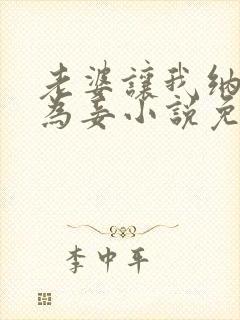 老婆讓我納
為妾小說免
李中平